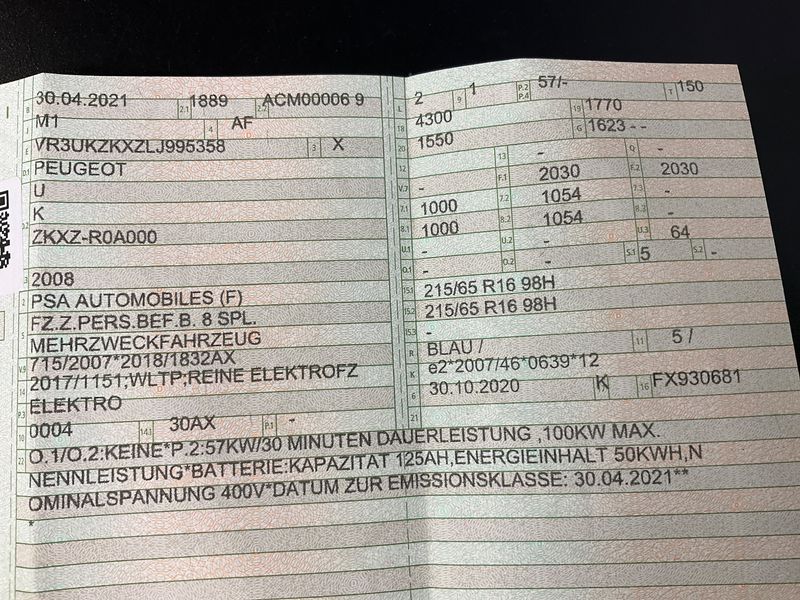 B 30.04.2021 2.1 1889 2.2 ACM00006 9
J M1 4 AF
E VR3UKZKXZLJ995358 3 X
D.1 PEUGEOT
U
D.2 K
ZKXZ-R0A000
3 2008
2 PSA AUTOMOBILES (F)
5 FZ.Z.PERS.BEF.B. 8 SPL.
MEHRZWECKFAHRZEUG
V.9 715/2007*2018/1832AX
14 2017/1151;WLTP;REINE ELEKTROFZ
P.3 ELEKTRO
10 0004 14.1 30AX P.1 -
L 2 9 1 P.2 P.4 57/- T 150
18 4300 19 1770
20 1550 G 1623 - -
12 - 13 - Q -
V.7 - F.1 2030 F.2 2030
7.1 1000 7.2 1054 7.3 -
8.1 1000 8.2 1054 8.3 -
U.1 - U.2 - U.3 64
O.1 - O.2 - S.1 5 S.2 -
15.1 215/65 R16 98H
15.2 215/65 R16 98H
15.3 -
R BLAU / 11 5 /
K e2*2007/46*0639*12
6 30.10.2020 K 16 FX930681
21
22 O.1/O.2:KEINE*P.2:57KW/30 MINUTEN DAUERLEISTUNG ,100KW MAX.
NENNLEISTUNG*BATTERIE:KAPAZITAT 125AH,ENERGIEINHALT 50KWH,N
OMINALSPANNUNG 400V*DATUM ZUR EMISSIONSKLASSE: 30.04.2021**
*